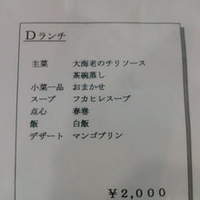 Dランチ
主菜 大海老のチリソース
茶碗蒸し
小菜一品 おまかせ
スープ フカヒレスープ
点心 春巻
飯 白飯
デザート マンゴプリン
¥2,000